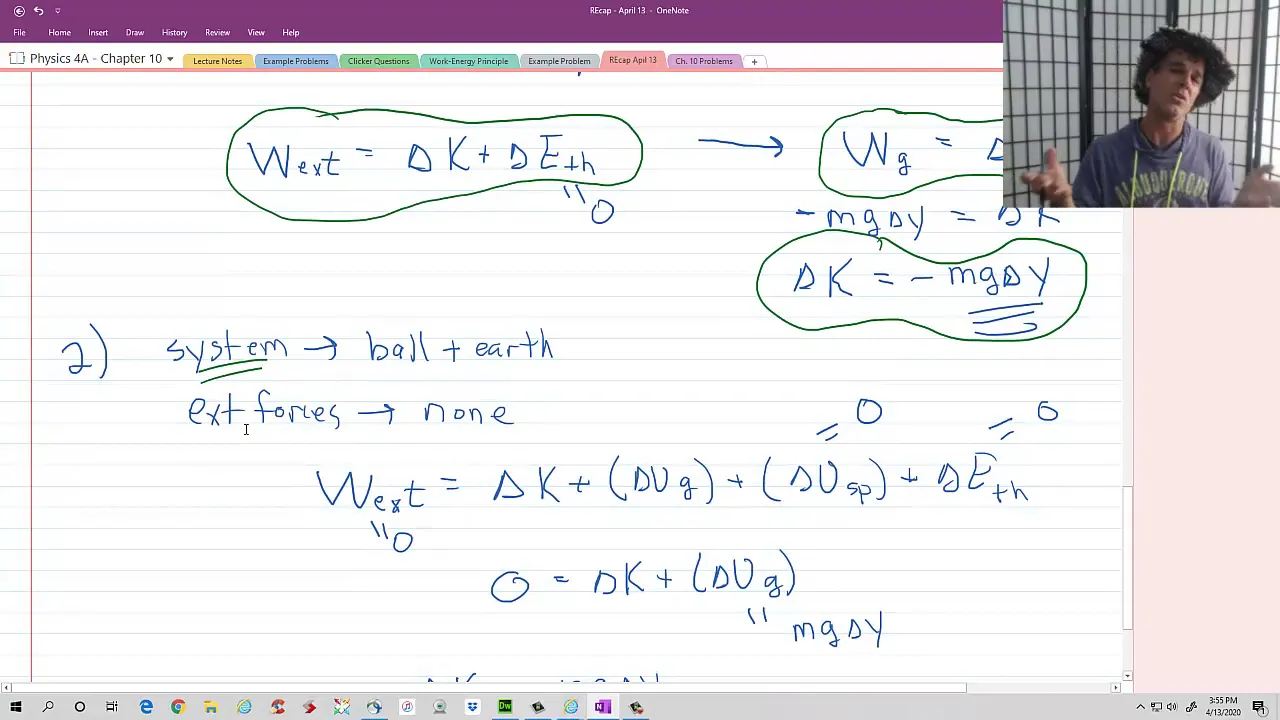 REcap - April 13 - OneNote
File Home Insert Draw History Review View Help
Physics 4A - Chapter 10 Lecture Notes Example Problems Clicker Questions Work-Energy Principle Example Problem REcap Apil 13 Ch. 10 Problems +
W_ext = ΔK + ΔE_th → W_g = Δ
" 0
- mgΔy = ΔK
ΔK = - mgΔy
2) system → ball + earth
ext forces → none
= 0 = 0
W_ext = ΔK + (ΔU_g) + (ΔU_sp) + ΔE_th
" 0
0 = ΔK + (ΔU_g)
" mgΔy
ALBUQUERQUE
3:55 PM
4/13/2020